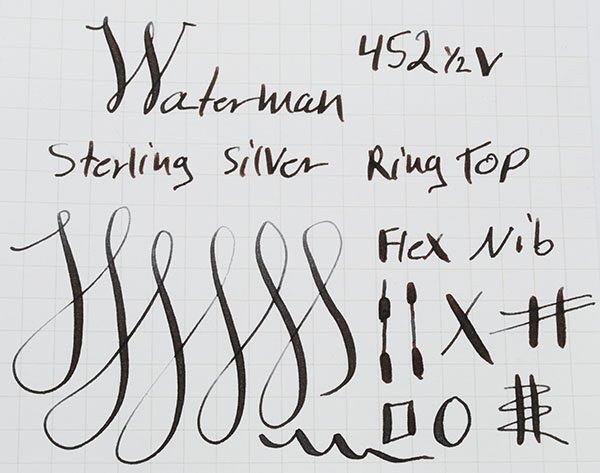 Waterman 452 1/2 V
Sterling Silver Ring Top
Flex Nib